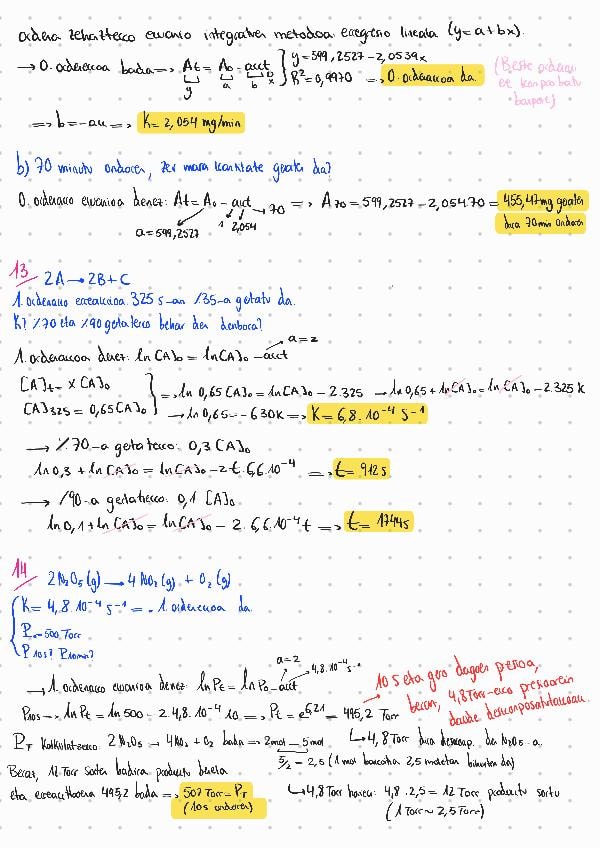 ordena zehazteko ekuazio integratuen metodoa: erregresio lineala (y=a+bx).
→ 0. ordenekoa bada => At = A0 - aut } y=599,2527-2,0539x
y a b x } R²=0,9970 => 0. ordenakoa da
(Beste ordenak
ez konprobatu
barren)
=> b=-au => K= 2,054 mg/min
b) 70 minutu ondoren, zer masa kantitate geratu da?
0. ordenako ekuazioa denez: At=A0-aut → 70 => A70=599,2527-2,054.70= 455,47mg geratu
a=599,2527 1 2,054 dira 70min ondoren
13 2A → 2B+C
1. ordenako erreakzioa. 325 s-an %35-a gertatu da.
K? %70 eta %90 gertatzeko behar den denbora?
a=2
1. ordenakoa denez: ln[A]0 = ln[A]0 - aut
[A]t = x[A]0
[A]325=0,65[A]0 } => ln 0,65[A]0=ln[A]0-2.325 → ln 0,65+ln[A]0=ln[A]0-2.325K
→ ln 0,65=-630K => K= 6,8.10⁻⁴ s⁻¹
→ %70-a gertatzeko: 0,3 [A]0
ln 0,3 + ln[A]0 = ln[A]0 - 2t.6,6.10⁻⁴ => t= 912s
→ %90-a gertatzeko: 0,1 [A]0
ln 0,1+ln[A]0 = ln[A]0 - 2.6,6.10⁻⁴t => t= 1744s
14 2N2O5(g) → 4NO2(g) + O2(g)
K= 4,8.10⁻⁴ s⁻¹ = 1. ordenekoa da
P0=500 Torr
P10s? P10min?
a=2
→ 1. ordenako ekuazioa denez: ln Pt = ln P0 - aut 4,8.10⁻⁴ s⁻¹
10 s eta gero dagoen presioa,
beraz, 4,8 Torr-eko presioarein
daude deskonposatutakoak.
P10s → ln Pt = ln 500 - 2.4,8.10⁻⁴ 10 => Pt = e^6,21 = 495,2 Torr
→ 4,8 Torr dira deskonp. den N2O5-a.
PT kalkulatzeko: 2N2O5 → 4NO2 + O2 bada => 2mol — 5mol
5/2 = 2,5 (1 mol bakoitza 2,5 moletan bihurtzen da)
Beraz, 12 Torr sortu badira produktu bezala
eta erreaktiboena 495,2 bada => 507 Torr = PT
(10s ondoren)
→ 4,8 Torr horiek: 4,8.2,5 = 12 Torr produktu sortu
(1 Torr ~ 2,5 Torr)